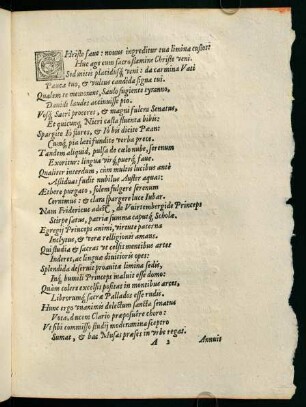 CHriste faue: nouus ingreditur tua limina custos:
Huc ageeum sacro flamine Christe veni.
Sed mitis placidusq́; veni: da carmina Vati
Pauca tuo, & vultus candida signa tui.
Qualem te memorant, Saulo fugiente tyranno,
Dauidi laudes accinuisse pio.
Vosq́; Sacri proceres, & magni fulcra Senatus,
Et quicunq; Nicri casta fluenta bibit:
Spargite Iò flores, & Iò bis dicite Pæan:
Cuiusq́; pia læti fundite verba prece.
Tandem aliquid, pulsa de cælo nube, serenum
Exoritur: lingua virq́; puerq́; fauet.
Qualiter interdum, cùm multi lucibus antè
Assiduas fudit nubilus Auster aquas:
Aethere purgato, solem fulgere serenum
Cernimus: & clara spargere luce iubar.
Nam Fridericus adest, de Vuirtembergide Princeps
Stirpe satus, patriæ summa caputq́; Scholæ.
Egregij Princeps animi, virtute paterna
Inclytus, & veræ relligionis amans.
Qui studia & sacras vt celsis mentibus artes
Inderet, ac linguæ diuitioris opes:
Splendida deseruit proauitæ limina sedis,
Inq́; humili Princeps maluit esse domo:
Quàm colere excelsis positas in montibus arces,
Librorumq́; sacræ Palladis esse rudis.
Hunc ergò vnanimis delectum sancta senatus
Vota, ducem Clario præposuêre choro:
Vt sibi commisso studij moderamina sceptro
Sumat, & hac Musas præses in vrbe regat.
A 2 Annuit